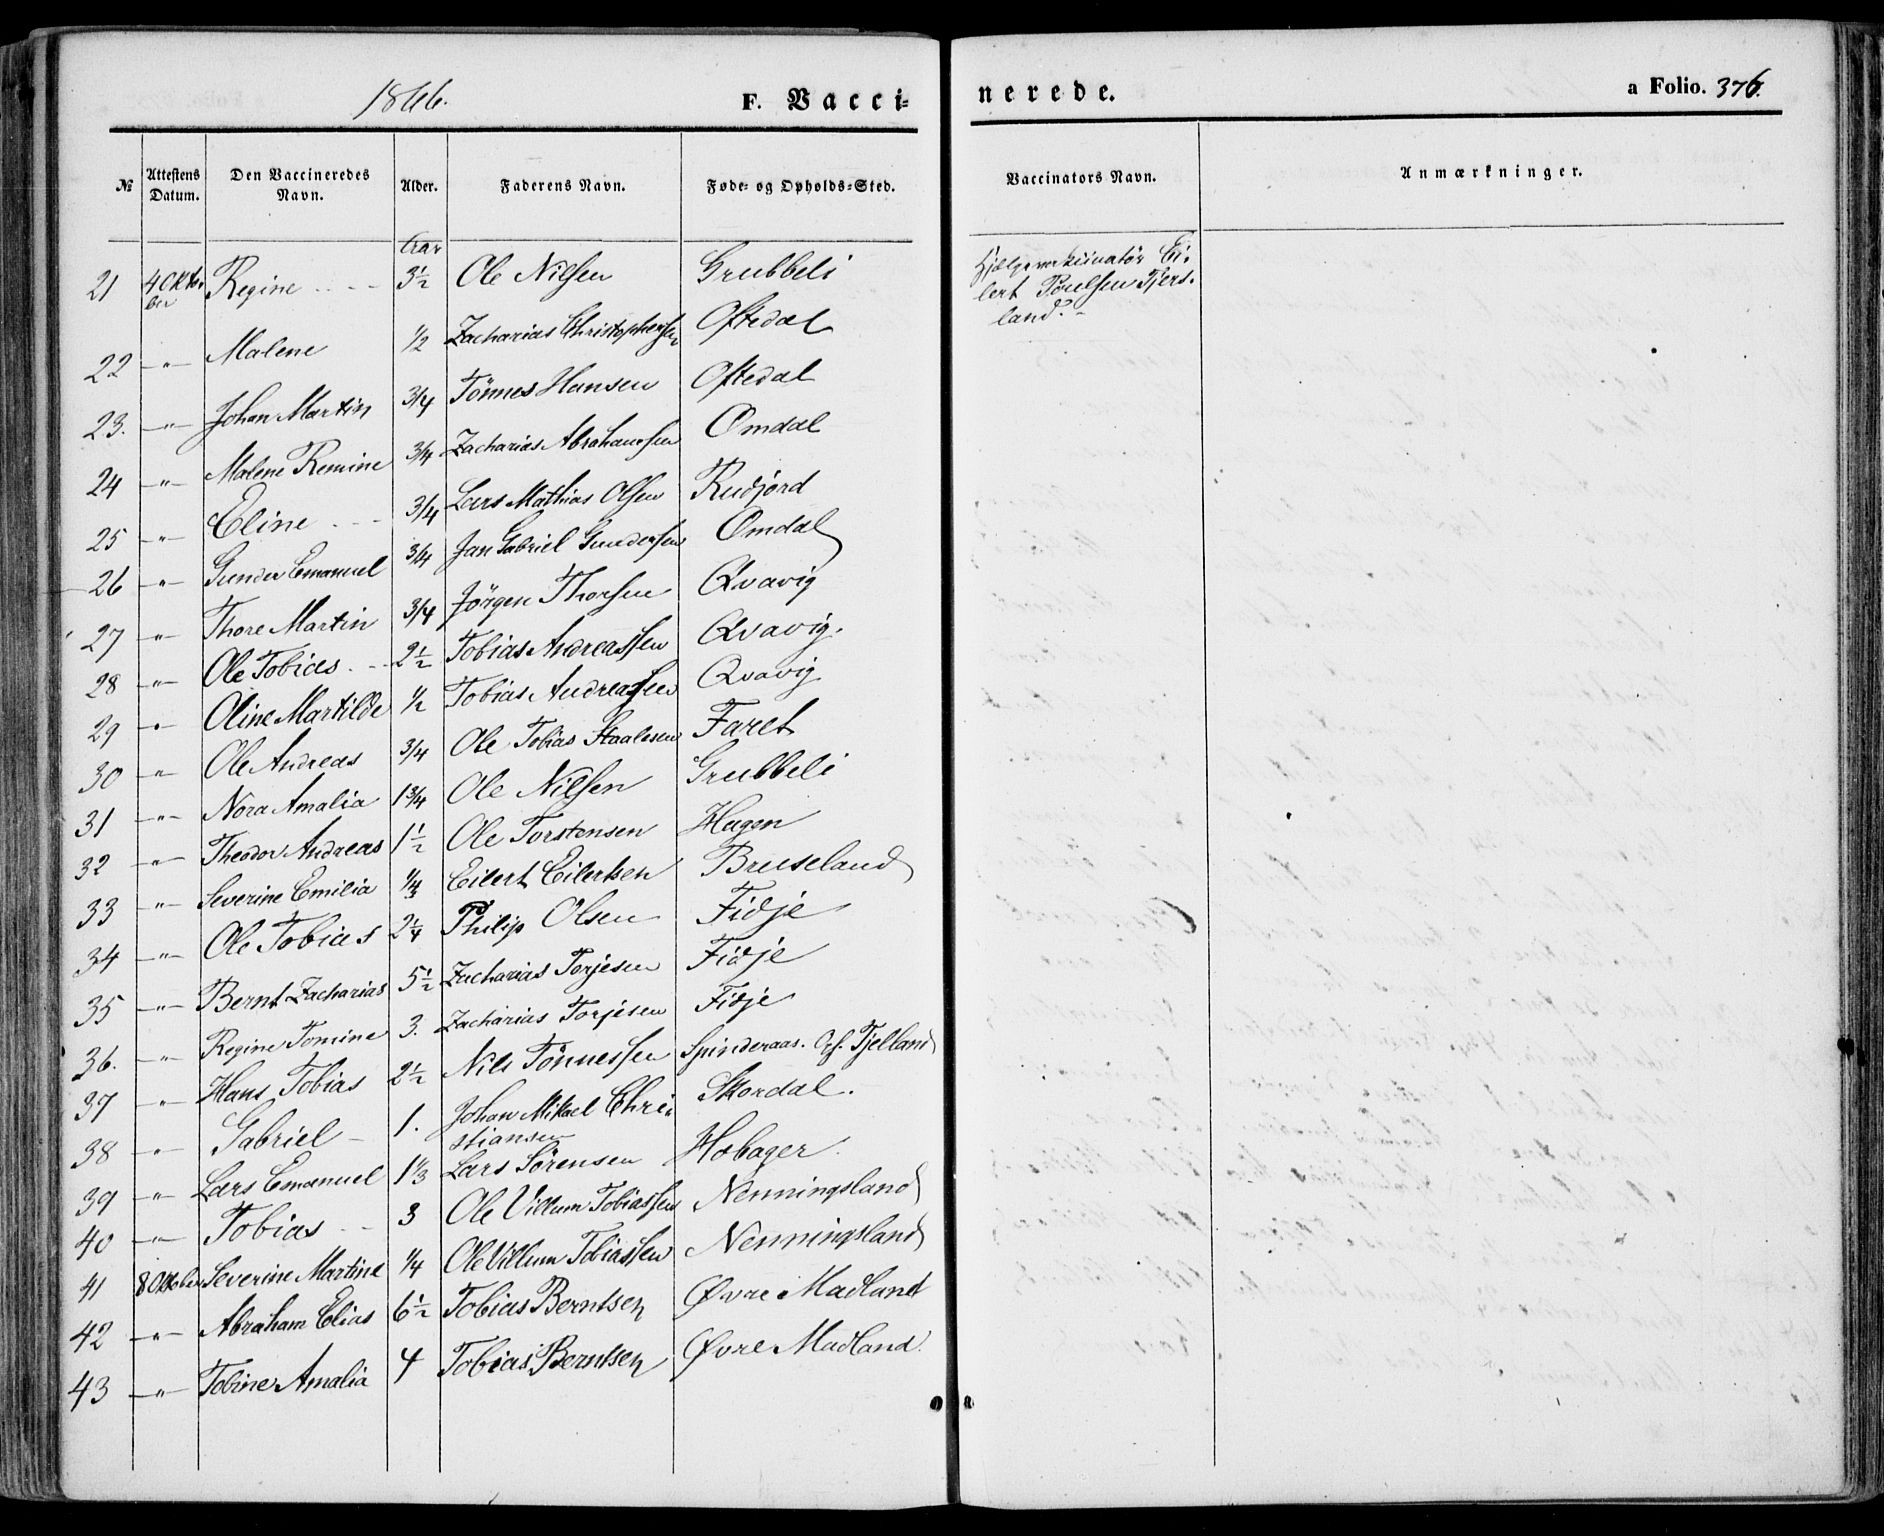 1866.
F. Vacci-
nerede.
a Folio. 376.
№ Attestens Datum. Den Vaccineredes Navn. Alder. Faderens Navn. Føde- og Opholds-Sted. Vaccinators Navn. Anmærkninger.
Aar
21 4 Oktober Regine 3½ Ole Nilsen Grubbeli Hjælpevakcinatør Ei-
lert Poulsen Tjers-
land.
22 -"- Malene ½ Zacharias Christophersen Oftedal
23. -"- Johan Martin 3/4 Tönnes Hansen Oftedal
24 -"- Malene Remine 3/4 Zacharias Abrahamsen Omdal
25 -"- Eline 3/4 Lars Mathias Olsen Rudjord
26 -"- Gunder Emanuel 3/4 Jan Gabriel Gundersen Omdal
27 -"- Thore Martin 3/4 Jörgen Thorsen Qvavig
28 -"- Ole Tobias 2½ Tobias Andreassen Qvavig.
29 -"- Oline Martilde ½ Tobias Andreassen Qvavig
30 -"- Ole Andreas 3/4 Ole Tobias Staalesen Faret
31 -"- Nora Amalia 1 3/4 Ole Nilsen Grubbeli
32 -"- Theodor Andreas 1½ Ole Torstensen Hagen
33 -"- Severine Emilia Eilert Eilertsen Bruseland
34 -"- Ole Tobias 2¼ Philip Olsen Fidje
35 -"- Bernt Zacharias 5½ Zacharias Torjesen Fidje
36. -"- Regine Tomine 3. Zacharias Torjesen Fidje
37 -"- Hans Tobias 2½ Nils Tönnessen Spinderaas. Tjelland
38 -"- Gabriel 1. Johan Mikael Chri-
stiansen Skordal.
39 -"- Lars Emanuel 1⅓ Lars Sörensen Hobager
40 -"- Tobias 3 Ole Villum Tobiassen Nenningsland
41 8 Oktober Severine Martine ¼ Ole Villum Tobiassen Nenningsland
42 -"- Abraham Elias 6½ Tobias Berntsen Øvre Madland
43 -"- Tobine Amalia 4 Tobias Berntsen Øvre Madland.